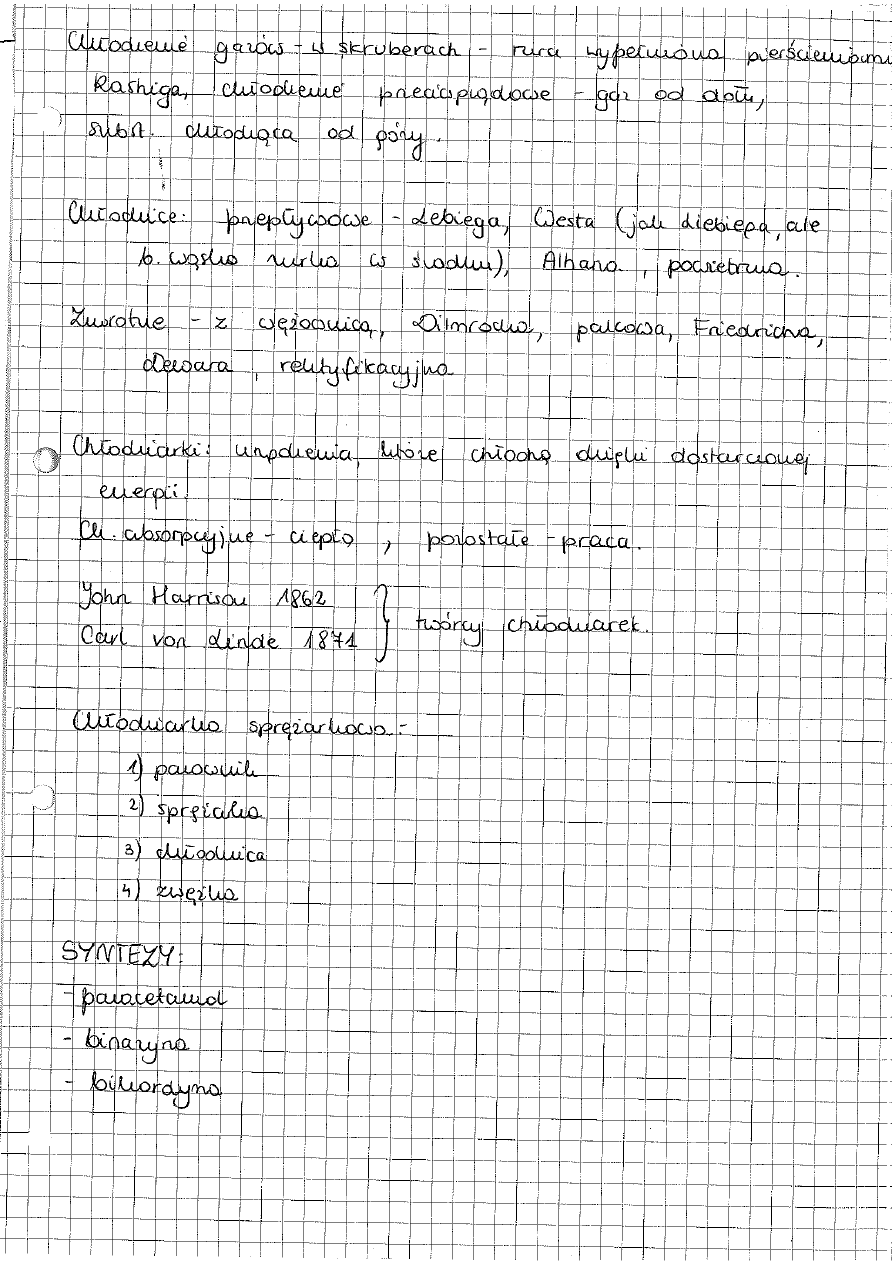 Chłodzenie gazów - w skruberach - rura wypełniona pierścieniami
Rashiga, chłodzenie przeciwprądowe - gaz od dołu,
subst. chłodząca od góry.
Chłodnice: przepływowe - Liebiega, Westa (jak Liebiega, ale
b. wąska rurka w środku), Allhana, powietrzna.
Zwrotne - z wężownicą, Dimrotha, palcowa, Friedricha,
Dewara, rektyfikacyjna
Chłodziarki: urządzenia, które chłodzą dzięki dostarczonej
energii.
Ch. absorpcyjne - ciepło, pozostałe - praca.
John Harrison 1862
Carl von Linde 1871 } twórcy chłodziarek.
Chłodziarka sprężarkowa:
1) parownik
2) sprężarka
3) chłodnica
4) zwężka
SYNTEZY:
- paracetamol
- binazyna
- bikordyna